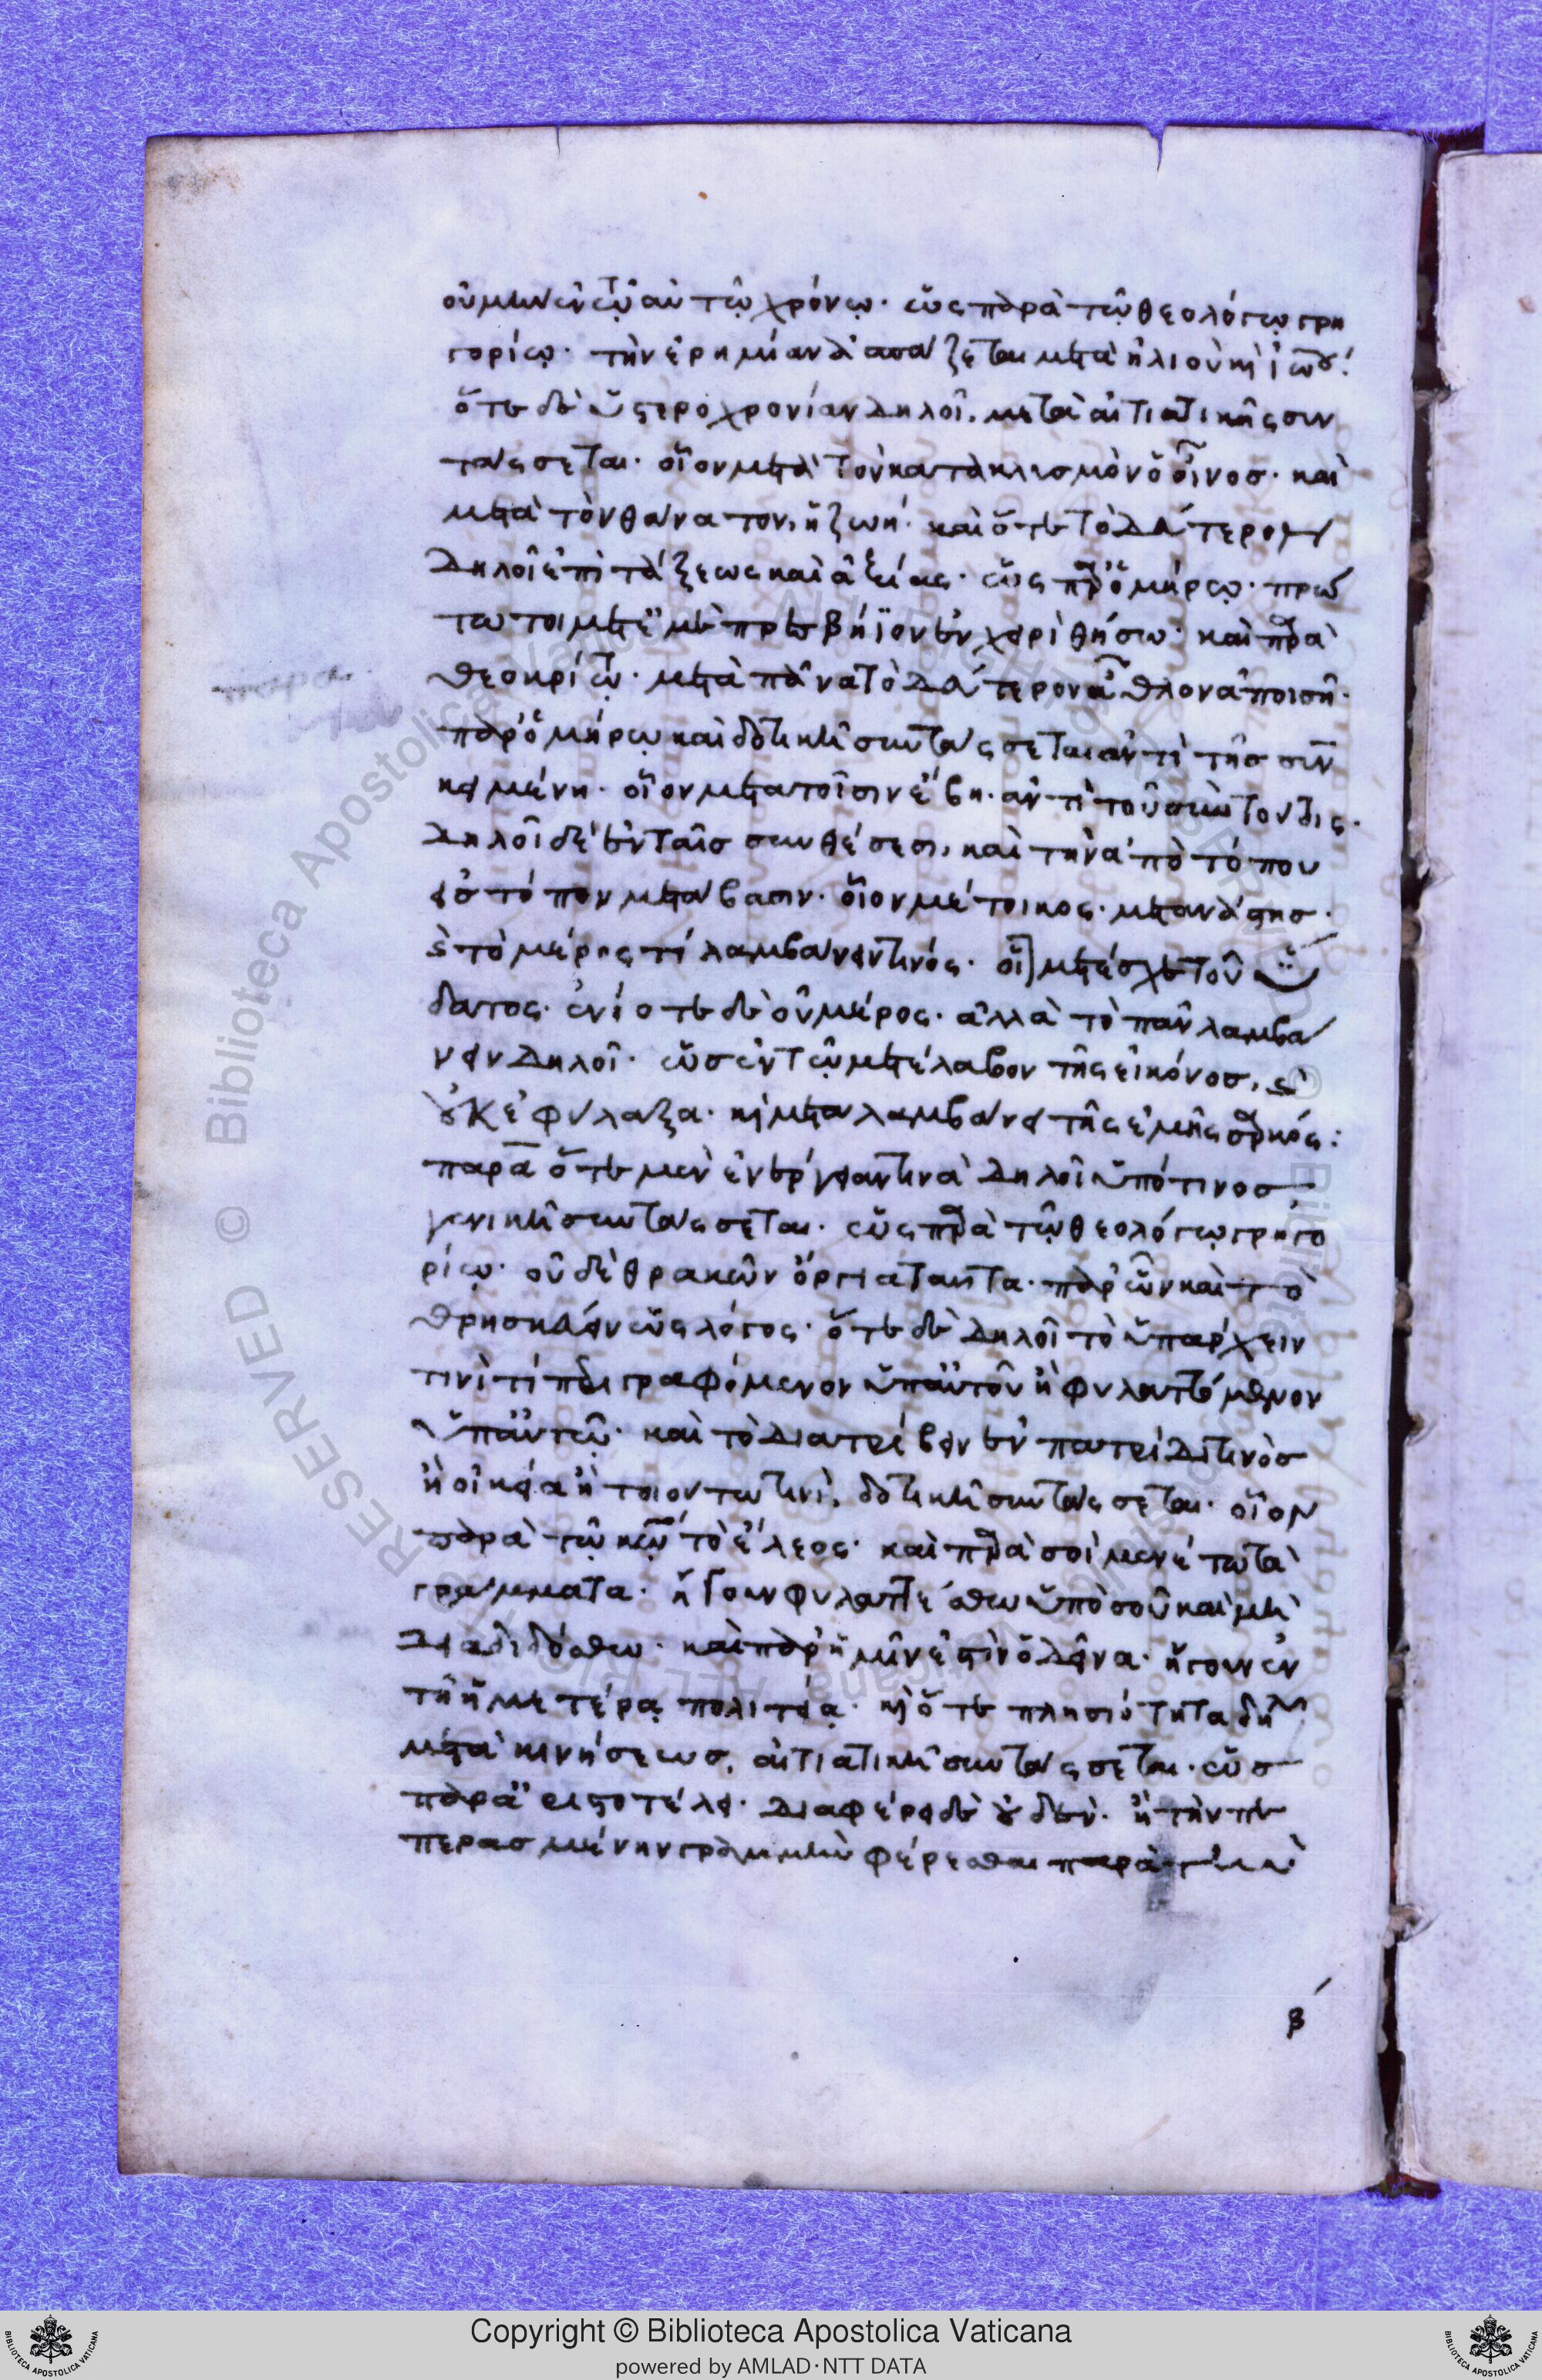 οὐ μὴν ἐν τῷ αὐτῷ χρόνῳ· ὡς παρὰ τῷ θεολόγῳ γρη
γορίῳ· τὴν ἐρημίαν ἀσπάζεται μετὰ ἠλιοὺ καὶ ἰωου·
ὅτε δὲ ὑστεροχρονίαν δηλοῖ, μετὰ αἰτιατικῆς συν
τάσσεται· οἷον μετὰ τὸν κατακλυσμὸν ὁ οἶνος· καὶ
μετὰ τὸν θάνατον, ἡ ζωή· καὶ ὅτε τὸ δεύτερον
δηλοῖ ἐπὶ τάξεως καὶ ἀξίας· ὡς παρ' ὁμήρῳ· πρώ
τω τοι μετ' ἐμὲ πρεσβήϊον ἐν χερὶ θήσω· καὶ παρὰ
παρα
θεοκρίτῳ· μετὰ πᾶνα τὸ δεύτερον ἆθλον ἀποισῇ·
παρ' ὁμήρῳ καὶ δοτικῇ συντάσσεται ἀντὶ τῆς συν
κειμένη· οἷον μετὰ τοῖσιν ἔβη· ἀντὶ τοῦ σὺν τούτοις·
δηλοῖ δὲ ἐν ταῖς συνθέσεσι, καὶ τὴν ἀπὸ τόπου
εἰς τόπον μετάβασιν· οἷον μέτοικος· μετανάστης·
καὶ τὸ μέρος τὶ λαμβάνειν τινός· οἷον μετέσχε τοῦ ὕ
δατος· ἐνίοτε δὲ οὐ μέρος· ἀλλὰ τὸ πᾶν λαμβά
νειν δηλοῖ· ὡς ἐν τῷ μετέλαβον τῆς εἰκόνος, καὶ
οὐκ ἐφύλαξα· καὶ μεταλαμβάνει τῆς ἐμῆς σαρκός:
παρὰ ὅτε μὲν ἐνεργεῖσθαί τινα δηλοῖ ὑπό τινος
γενικῇ συντάσσεται· ὡς παρὰ τῷ θεολόγῳ γρηγο
ρίῳ· οὐδὲ θρακῶν ὄργια ταῦτα· παρ' ὧν καὶ τὸ
θρησκεύειν ὡς λόγος· ὅτε δὲ δηλοῖ τὸ ὑπάρχειν
τινὶ τὶ περιγραφόμενον ὑπ' αὐτοῦ ἢ φυλαττόμενον
ὑπ' αὐτῷ· καὶ τὸ διατρίβειν ἐν πατρίδι τινὸς
ἢ οἰκίᾳ ἢ τοιούτω τινὶ, δοτικῇ συντάσσεται· οἷον
παρὰ τῷ κῷ τὸ ἔλεος· καὶ παρὰ σοὶ μενέτω τὰ
γράμματα· ἤγουν φυλαττέσθω ὑπὸ σοῦ καὶ μὴ
διαδιδόσθω· καὶ παρ' ἡμῖν ἐστὶν ὁ δεῖνα· ἤγουν ἐν
τῇ ἡμετέρᾳ πολιτείᾳ· καὶ ὅτε πλησιότητα δη
μετὰ κινήσεως, αἰτιατικῇ συντάσσεται· ὡς
παρὰ ἀριστοτέλει· διαφέρει δὲ οὐδὲν· ἢ τὴν πε
περασμένην γραμμὴν φέρεσθαι παρὰ
β
Copyright © Biblioteca Apostolica Vaticana
powered by AMLAD·NTT DATA